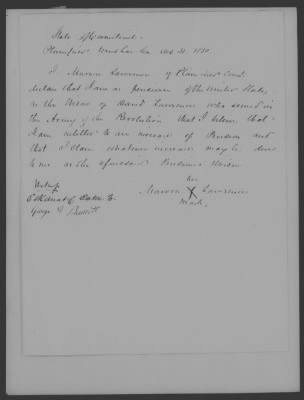 State of Connecticut
Plainfield Windham Co. Oct 21. 1880.
I Marcia Lawrence of Plainfield Conn.
declare that I am a pensioner of the United States
as the Widow of David Lawrence who served in
the Army of the Revolution that I believe that
I am entitled to an increase of Pension and
that I claim whatever increase may be due
to me as the aforesaid
Witness
her
Lawrence
X
mark.
George